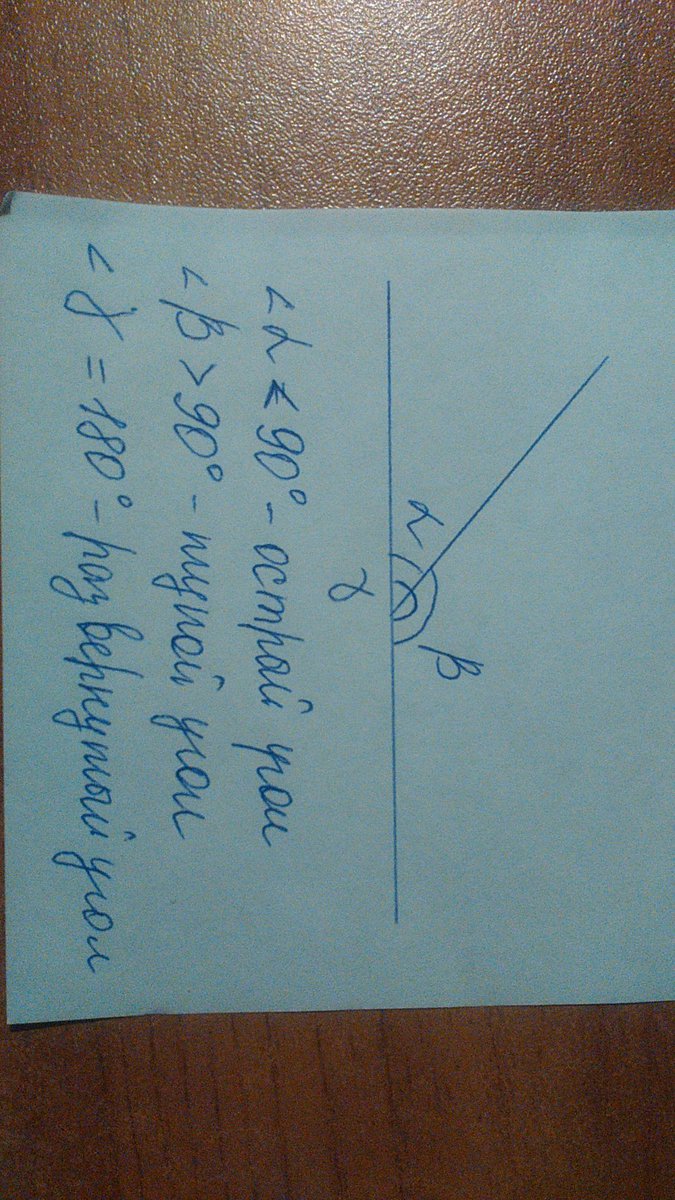 α
β
γ
∠α < 90° - острый угол
∠β > 90° - тупой угол
∠γ = 180° - развернутый угол